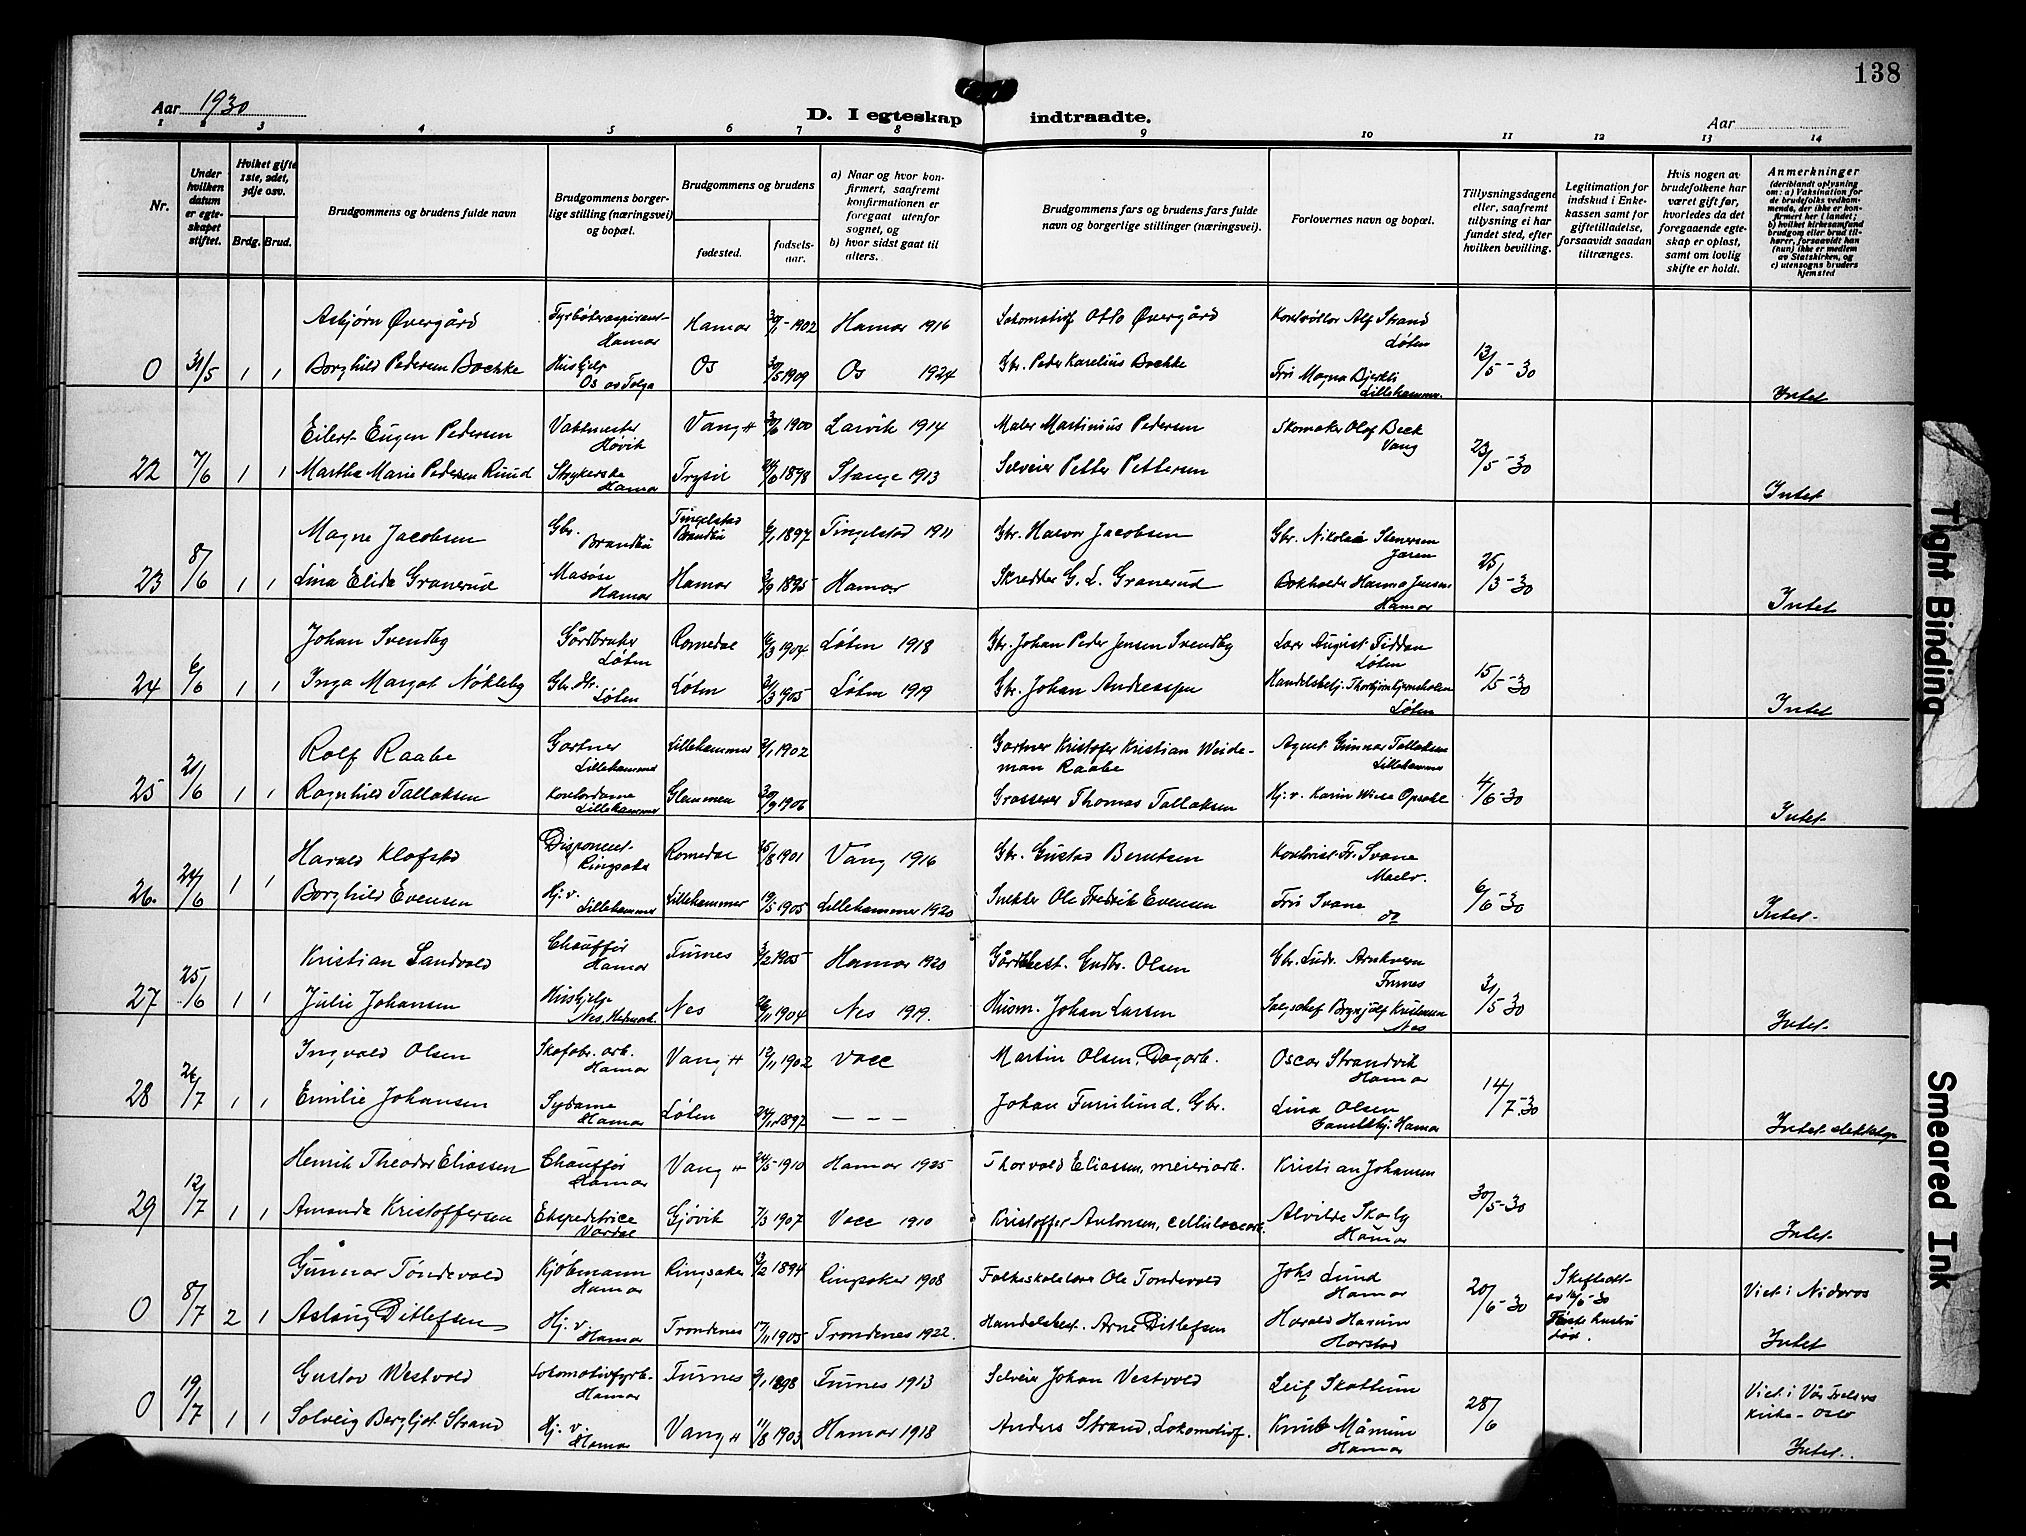 138
Aar 1930
D. I egteskap indtraadte.
Aar
1 2 3 4 5 6 7 8 9 10 11 12 13 14
Nr.
Under hvilken datum er egteskapet stiftet.
Hvilket gifte 1ste, 2det, 3dje osv.
Brdg. Brud.
Brudgommens og brudens fulde navn
Brudgommens borgerlige stilling (næringsvei) og bopæl.
Brudgommens og brudens
fødested.
fødselsaar.
a) Naar og hvor konfirmert, saafremt konfirmationen er foregaat utenfor sognet, og
b) hvor sidst gaat til alters.
Brudgommens fars og brudens fars fulde navn og borgerlige stillinger (næringsvei).
Forlovernes navn og bopæl.
Tillysningsdagene eller, saafremt tillysning ei har fundet sted, efter hvilken bevilling.
Legitimation for indskud i Enkekassen samt for giftetilladelse, forsaavidt saadan tiltrænges.
Hvis nogen av brudefolkene har været gift før, hvorledes da det foregaaende egteskap er opløst, samt om lovlig skifte er holdt.
Anmerkninger
(deriblandt oplysning om: a) Vaksination for de brudefolks vedkommende, der ikke er konfirmert her i landet; b) hvilket kirkesamfund brudgom eller brud tilhører, forsaavidt han (hun) ikke er medlem av Statskirken, og c) utensogns bruders hjemsted
Asbjørn Øvergård Fyrbøteraspirant Hamar Hamar 30/1-1902 Hamar 1916 Lokomotivf Otto Øvergård Kontrollør Alf Strand Løten
0 31/5 1 1 Borghild Pedersen Bochke Hushjelp Os av Tolga Os 30/5 1909 Os 1924 Gbr. Peder Karelius Bochke Frk Magna Bjerkli Lillehammer. 13/5-30 Intet
Eilert Eugen Pedersen Vaktmester Høvik Vang H 3/6 1900 Larvik 1914 Maler Martinius Pedersen Skomaker Olof Beck Vang
22 7/6 1 1 Martha Marie Pedersen Ruud Strykerske Hamar Trysil 24/6 1898 Stange 1913 Selveier Petter Pettersen 23/5-30 Intet
Magne Jacobsen Gbr. Brandbu Tingelstad Brandbu 6/1 1897 Tingelstad 1911 Gbr. Halvor Jacobsen Gbr. Nikolai Stenersen Jaren
23 8/6 1 1 Lina Elida Granerud Masøse Hamar Hamar 3/9 1895 Hamar Skredder G. L. Granerud Bokholder Hanna Jensen Hamar 25/3-30 Intet
Johan Svendby Gårdbruker Løten Romedal 6/3 1904 Løten 1918 Gbr. Johan Peder Jensen Svendby Lars August Fiddan Løten
24 6/6 1 1 Inga Margot Nøkleby Gbr. dtr. Løten Løten 21/3 1905 Løten 1919 Gbr. Johan Andreassen Handelsbetj. Thorbjørn Løten 15/5-30 Intet
Rolf Raabe Gartner Lillehammer Lillehammer 3/1 1902 Gartner Kristofer Kristian Weideman Raabe Agent Gunnar Tallaksen Lillehammer
25 21/6 1 1 Ragnhild Tallaksen Kontordame Lillehammer Glemmen 30/9 1906 Grosserer Thomas Tallaksen Hj. v. Karin Opsahl 4/6-30 Intet
Harald Klofstad Disponent Ringsaker Romedal 15/8 1901 Vang 1916 Gbr. Gustav Berntsen Kontorist Fr. Svane Moelv.
26. 24/6 1 1 Borghild Evensen Hj. v. Lillehammer Lillehammer 19/5 1905 Lillehammer 1920 Snekker Ole Fredrik Evensen Fru Svane do 6/6-30 Intet
Kristian Sandvold Chauffør Hamar Furnes 3/2 1905 Hamar 1920 Gårdbest. Gudbr. Olsen Gbr. Ludv. Arnkvern Furnes
27 25/6 1 1 Julie Johansen Hushjelp Nes, Hedmark. Nes 26/11 1904 Nes 1919. Husm. Johan Larsen Salgschef Brynjulf Kristensen Nes 31/5-30 Intet
Ingvald Olsen Skofabr. arb. Hamar Vang H 12/11 1902 Vall Martin Olsen, Dagarb. Oscar Strandvik Hamar
28 26/7 1 1 Emilie Johansen Sydame Hamar Løten 24/11 1897 – – – Johan Furulund, Gbr. Lina Olsen Hamar 14/7-30 Intet
Henrik Theodor Eliassen Chauffør Hamar Vang H 24/5 1910 Hamar 1925 Thorvald Eliassen, meieriarb. Kristian Johansen
29 12/7 1 1 Amanda Kristoffersen Ekspeditrice Vardal Gjøvik 7/3 1907 Vall 1910 Kristoffer Antonsen, cellulosearb. Alvilde Skoly Hamar 30/5-30 Intet
Gunnar Tøndevold Kjøbmann Hamar Ringsaker 13/2 1894 Ringsaker 1908 Folkeskolelærer Ole Tøndevold Johs Lund Hamar
0 8/7 2 1 Aslaug Ditlefsen Hj. v. Hamar Trondenes 17/11 1905 Trondenes 1922. Handelsbest. Arne Ditlefsen Harald Hanum Harstad 20/6-30 Skifteatt av 16/6-30 Første hustru død. Viet i Nidaros Intet
Gustav Westvold Lokomotivfyrb. Hamar Furnes 9/1 1898 Furnes 1913 Selveier Johan Vestvold Leif Skattum
0 19/7 1 1 Solveig Bergljot Strand Hj. v. Hamar Vang H 11/8 1903 Hamar 1918 Anders Strand, Lokomotivf. Knut Månum Hamar 28/6 Viet i Vår Frelsers Kirke - Oslo Intet.
Tight Binding
Smeared Ink